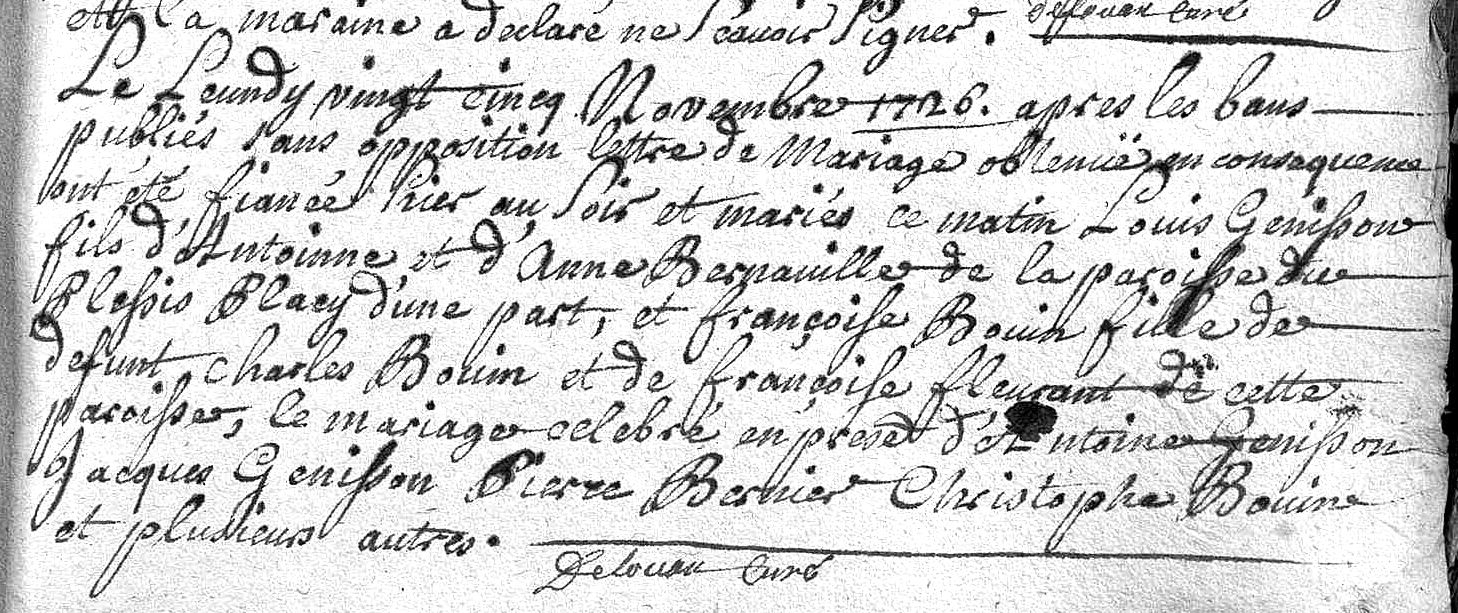 et la maraine a declaré ne sçavoir signer. Delouan curé
Le Leundy vingt cincq Novembre 1726. apres les bans
publiés sans opposition lettre de Mariage obtenuë en consequence
ont été fiancé hier au soir et mariés ce matin Louis Genisson
fils d'Antoinne et d'Anne Bernaville de la paroisse du
Plessis Placy d'une part, et françoise Bouin fille de
defunt Charles Bouin et de françoise fleurant de cette
paroisse, le mariage celebré en presēt d'Antoine Genisson
Jacques Genisson Pierre Bernier Christophe Bouin
et plusieurs autres.
Delouan curé